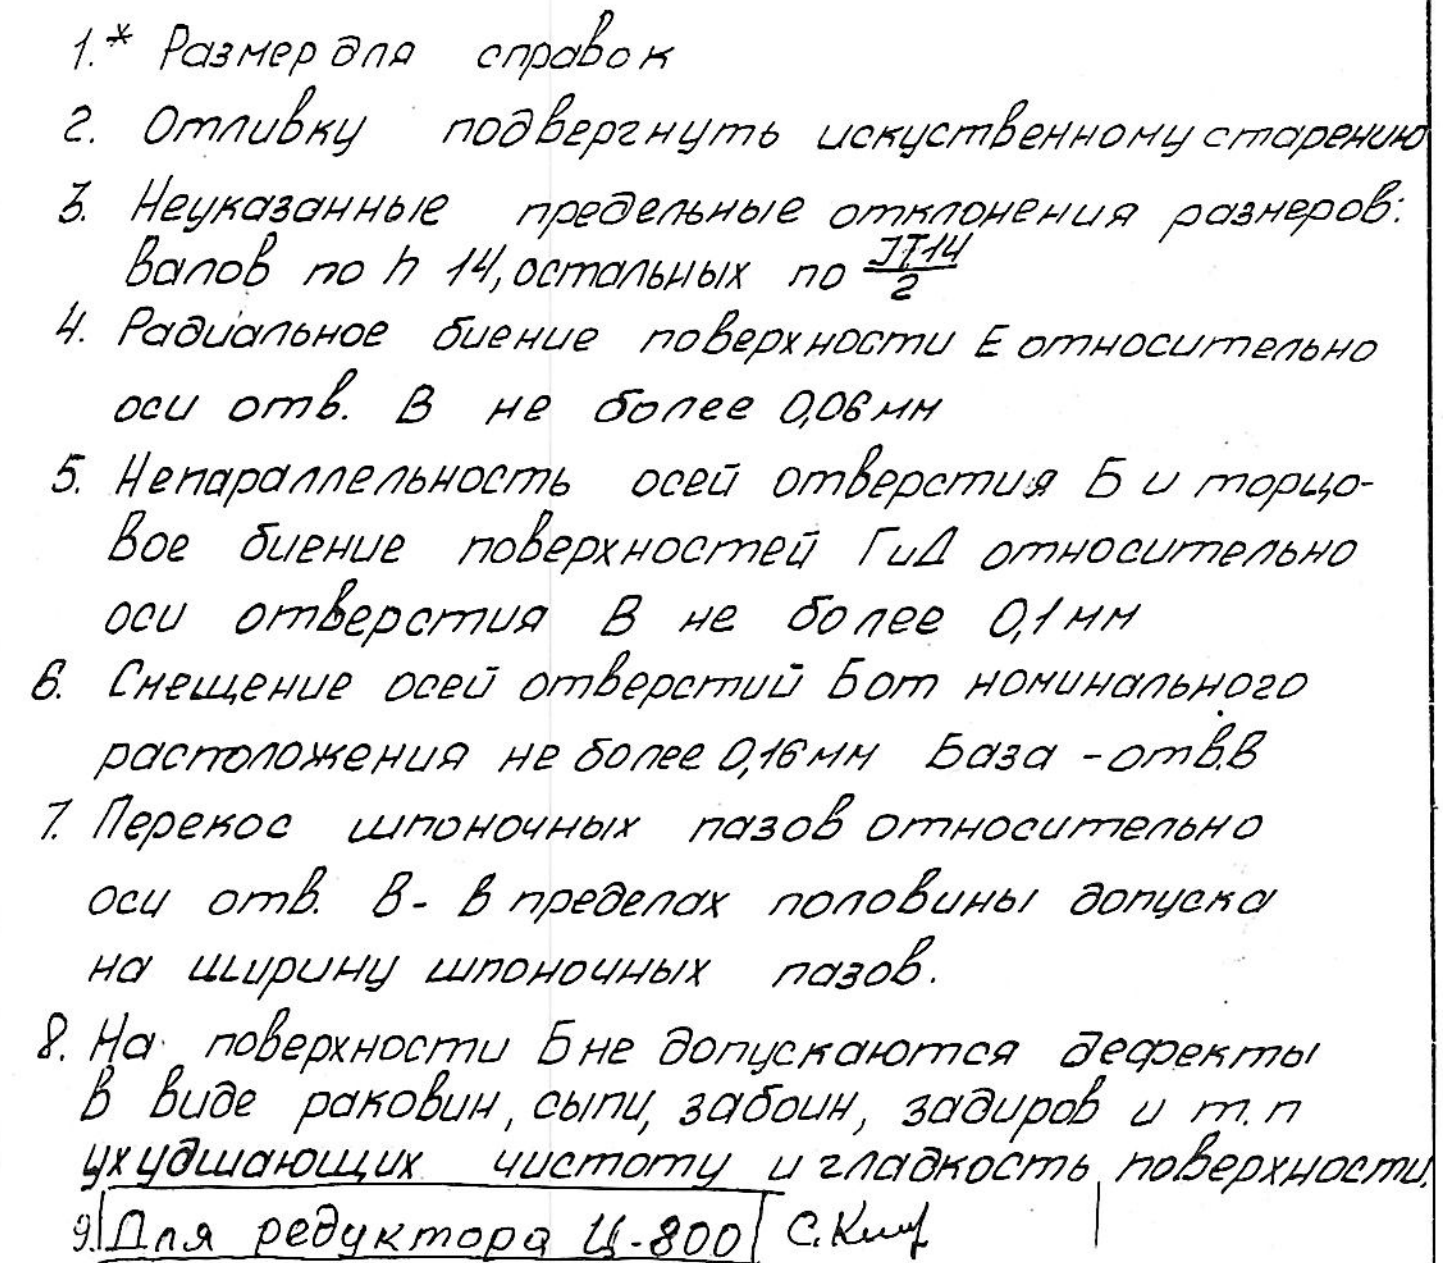 1.* Размер для справок
2. Отливку подвергнуть искуственному старению
3. Неуказанные предельные отклонения размеров:
валов по h 14, остальных по IT14/2
4. Радиальное биение поверхности Е относительно
оси отв. В не более 0,06 мм
5. Непараллельность осей отверстия Б и торцо-
вое биение поверхностей Г и Д относительно
оси отверстия В не более 0,1 мм
6. Смещение осей отверстий Б от номинального
расположения не более 0,16 мм База - отв. В
7. Перекос шпоночных пазов относительно
оси отв. В - в пределах половины допуска
на ширину шпоночных пазов.
8. На поверхности Б не допускаются дефекты
в виде раковин, сыпи, забоин, задиров и т.п
ухудшающих чистоту и гладкость поверхности.
9. Для редуктора Ц-800